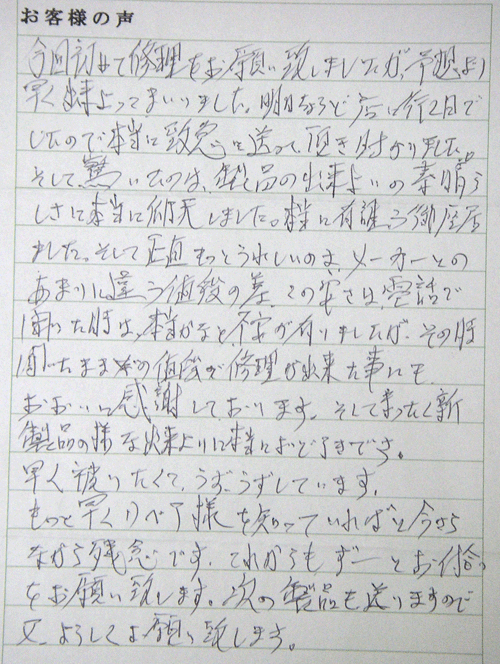 お客様の声
今回初めて修理をお願い致しましたが、予想より
早く出来上ってまいりました。明日ちょうど店に行く日で
したので本当に致急に送って頂き助かりました。
そして驚いたのは、製品の出来よいの素晴ら
しさに本当に仰天しました。本当に有難う御座居
ました。そして正直もっとうれしいのは、メーカーとの
あまりに違う値段の差、この安さは、電話で
聞いた時は、本当かなと不安が有りましたが、その時
聞いたままの値段で修理が出来た事にも
おおいに感謝しております。そしてまったく新
製品の様な出来よりに本当におどろきです。
早く被りたくて、うずうずしています。
もっと早くリペア様を知っていればと今さら
ながら残念です。これからもずーとお付合
をお願い致します。次の製品も送りますので
又よろしくお願い致します。